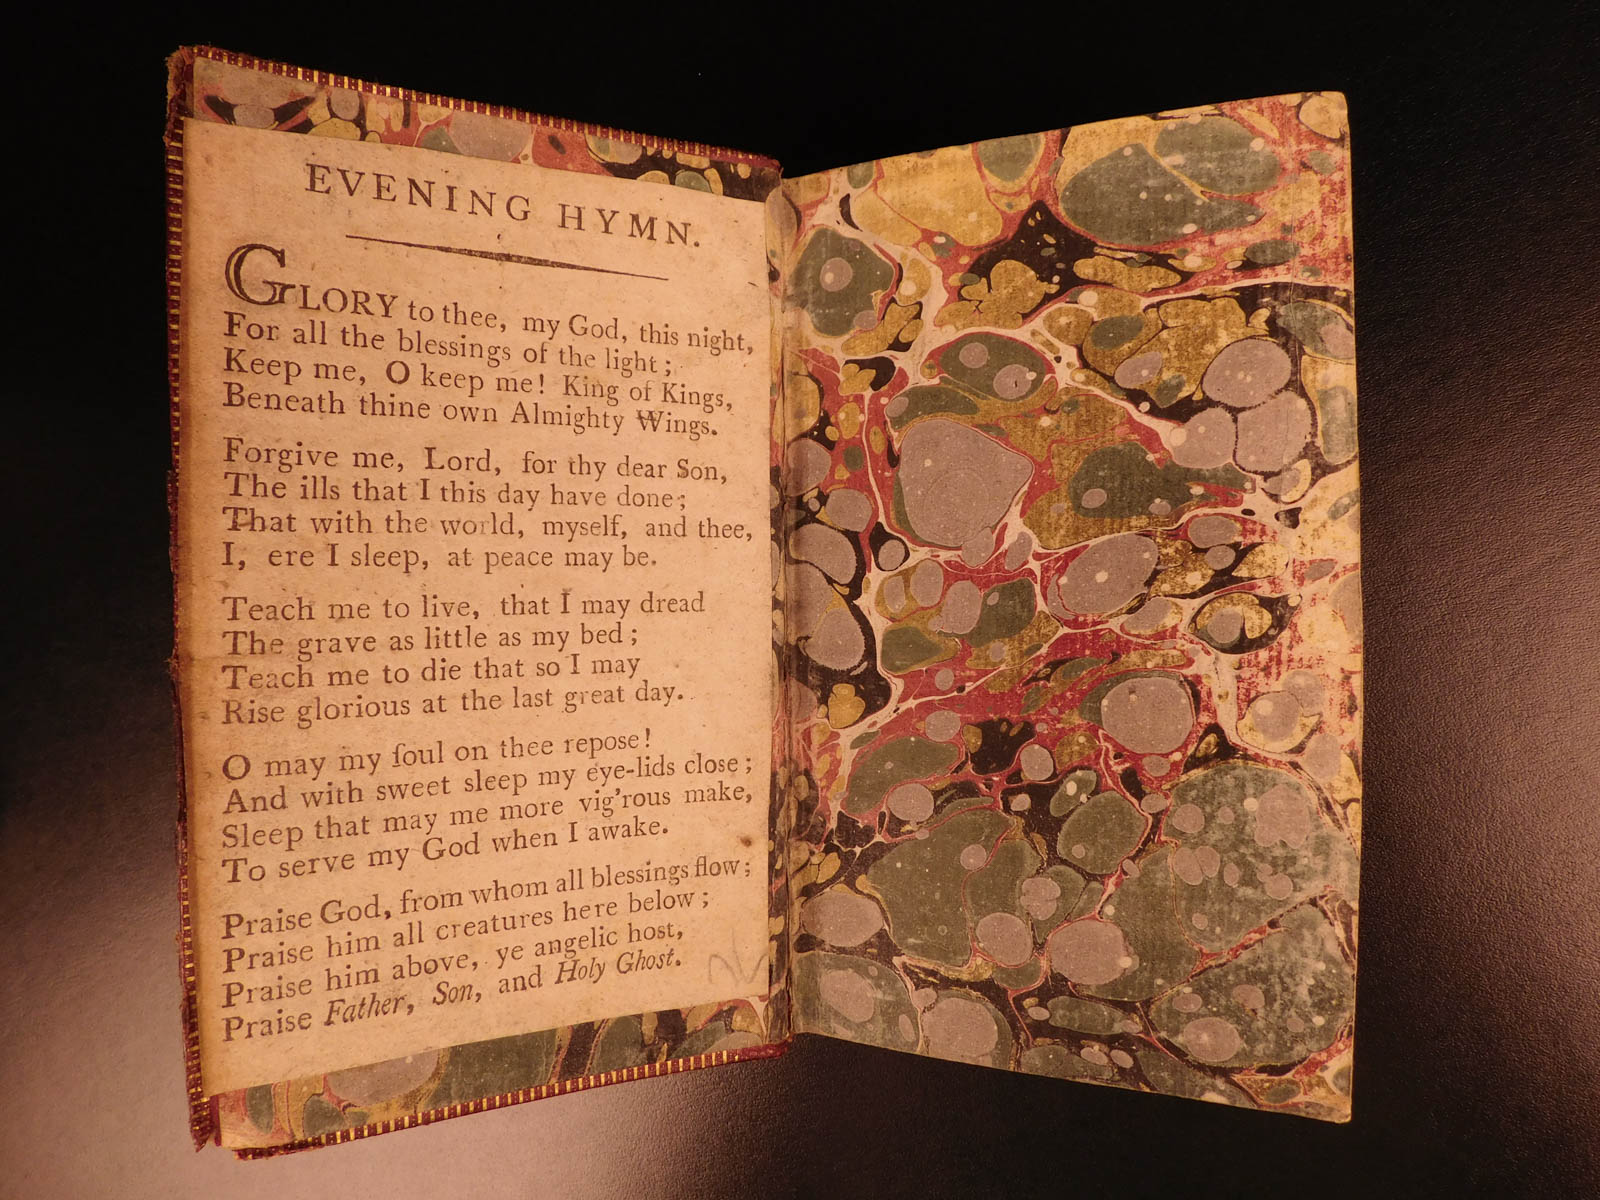 EVENING HYMN.
GLORY to thee, my God, this night,
For all the blessings of the light;
Keep me, O keep me! King of Kings,
Beneath thine own Almighty Wings.
Forgive me, Lord, for thy dear Son,
The ills that I this day have done;
That with the world, myself, and thee,
I, ere I sleep, at peace may be.
Teach me to live, that I may dread
The grave as little as my bed;
Teach me to die that so I may
Rise glorious at the last great day.
O may my ſoul on thee repose!
And with sweet sleep my eye-lids close;
Sleep that may me more vig'rous make,
To serve my God when I awake.
Praise God, from whom all blessings flow;
Praise him all creatures here below;
Praise him above, ye angelic host,
Praise Father, Son, and Holy Ghost.